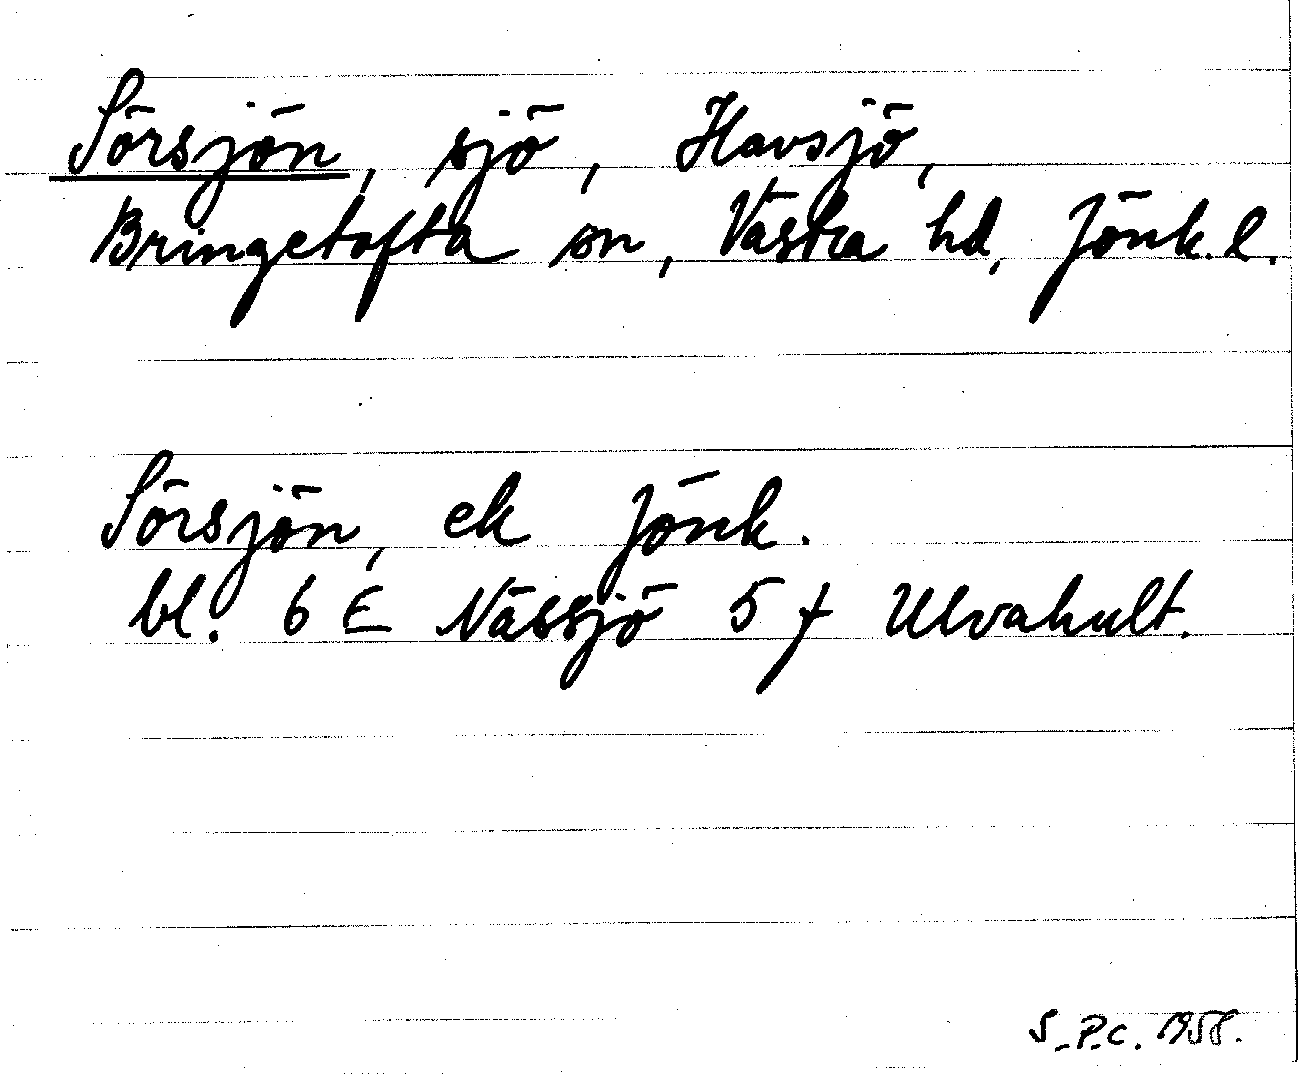 Sörsjön, sjö, Havsjö,
Bringetofta sn, Västra hd, Jönk. l.
Sörsjön, ek Jönk.
bl. 6 E Nässjö 5 f Ulvahult.
S-P.C. 1958.